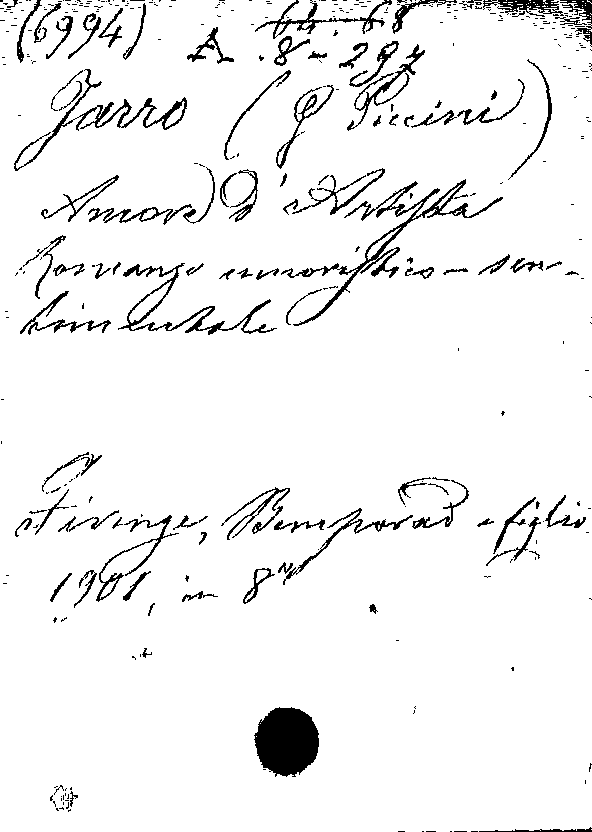 (6994) 64. 68
A. 8 - 297
Jarro (G Piccini)
Amore d'Artista
Romanzo umoristico - sen-
timentale
Firenze, Bemporad e figlio
1901, in 8°